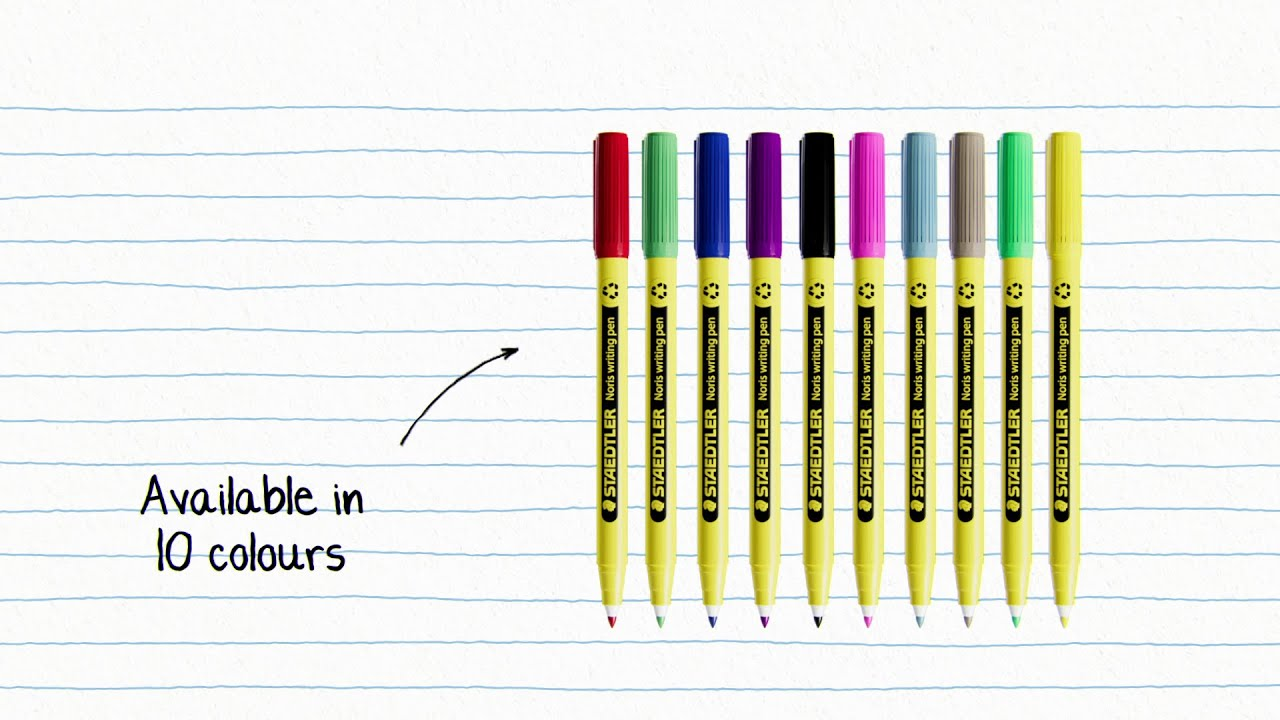 Available in
10 colours
STAEDTLER Noris writing pen
STAEDTLER Noris writing pen
STAEDTLER Noris writing pen
STAEDTLER Noris writing pen
STAEDTLER Noris writing pen
STAEDTLER Noris writing pen
STAEDTLER Noris writing pen
STAEDTLER Noris writing pen
STAEDTLER Noris writing pen
STAEDTLER Noris writing pen